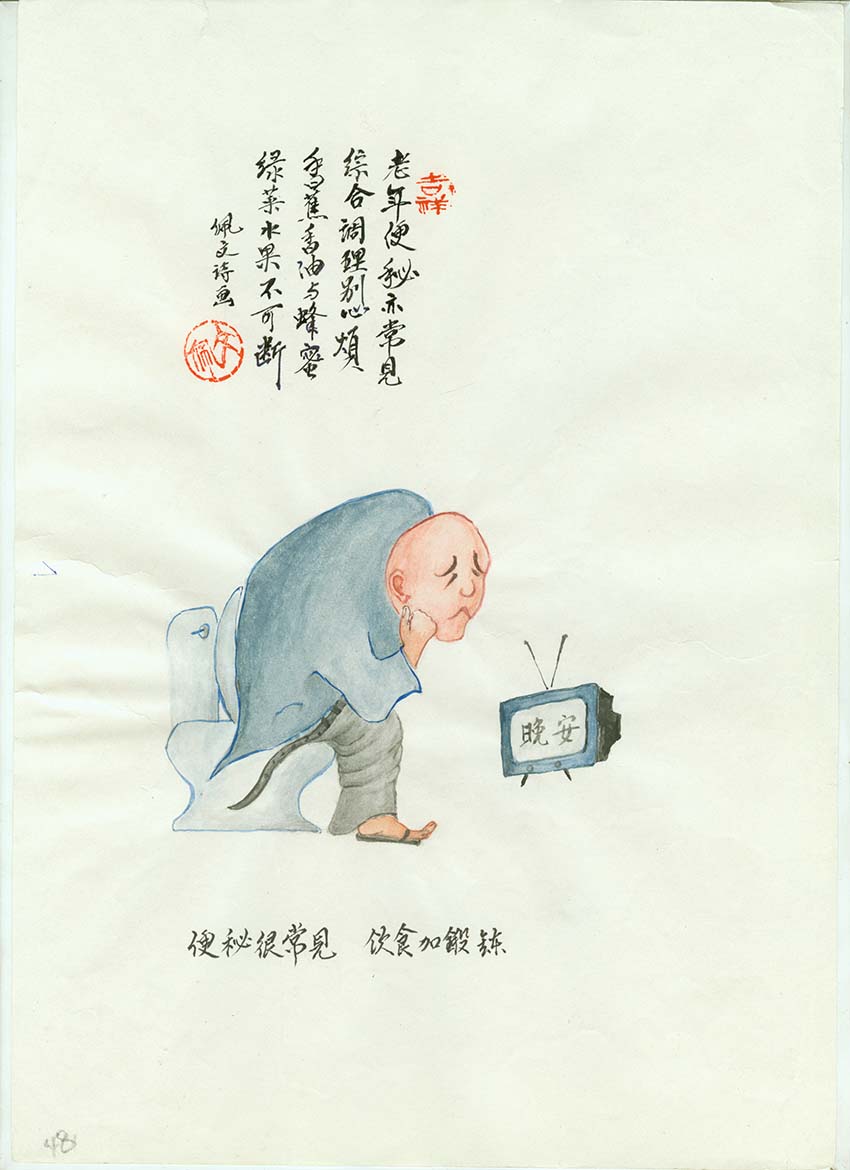 吉祥
老年便秘亦常見
综合调理别心烦
香蕉香油与蜂蜜
绿菜水果不可断
佩文诗画
晚安
便秘很常見 饮食加鍛鍊
48